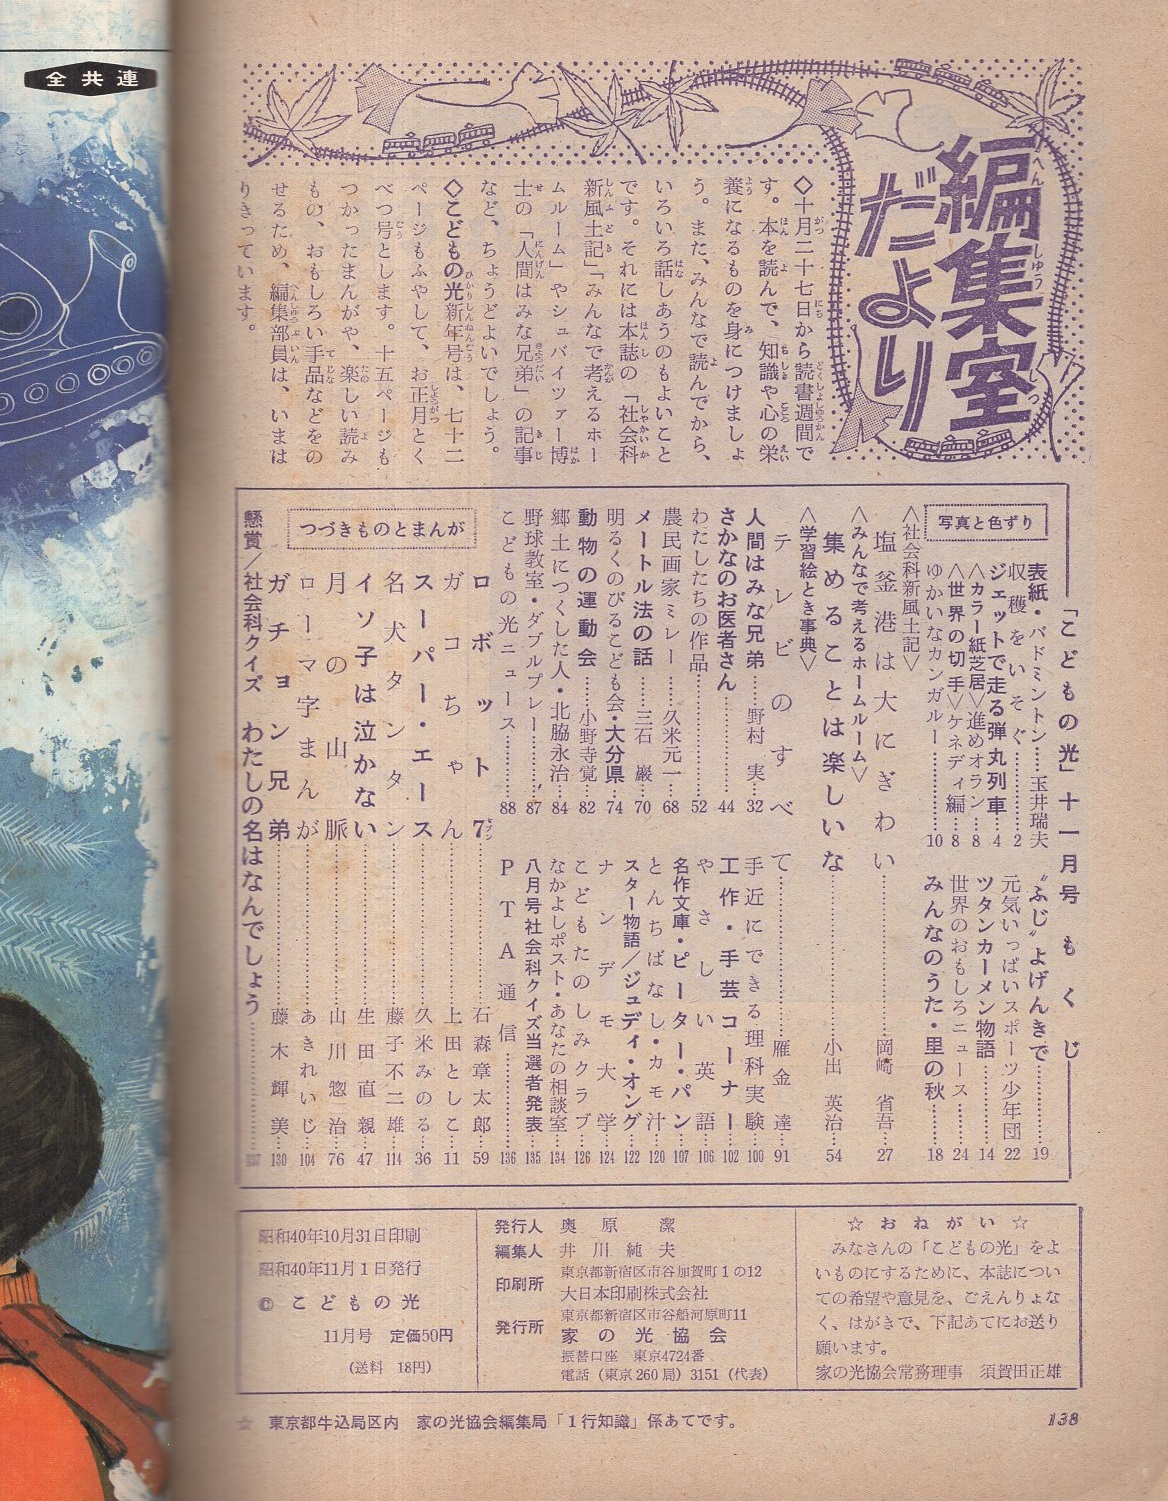 全共連
編集室
だより
◇十月二十七日から読書週間で
す。本を読んで、知識や心の栄
養になるものを身につけましょ
う。また、みんなで読んでから、
いろいろ話しあうのもよいこと
です。それには本誌の「社会科
新風土記」「みんなで考えるホー
ムルーム」やシュバイツァー博
士の「人間はみな兄弟」の記事
など、ちょうどよいでしょう。
◇こどもの光新年号は、七十二
ページもふやして、お正月とく
べつ号とします。十五ページも
つかったまんがや、楽しい読み
もの、おもしろい手品などをの
せるため、編集部員は、いまは
りきっています。
「こどもの光」十一月号 もくじ
写真と色ずり
表紙・バドミントン……玉井瑞夫
収穫をいそぐ……2
ジェットで走る弾丸列車…4
＜カラー紙芝居＞進めオラン…8
＜世界の切手＞ケネディ編…8
ゆかいなカンガルー……10
“ふじ”よげんきで……19
元気いっぱいスポーツ少年団 22
ツタンカーメン物語……14
世界のおもしろニュース……24
みんなのうた・里の秋……18
＜社会科新風土記＞
塩釜港は大にぎわい……岡崎 省吾…27
＜みんなで考えるホームルーム＞
集めることは楽しいな……小出 英治…54
＜学習絵とき事典＞
テレビのすべて……雁金 達…91
人間はみな兄弟……野村 実…32
さかなのお医者さん……44
わたしたちの作品……52
農民画家ミレー……久米元一…68
メートル法の話……三石 巌…70
明るくのびるこども会・大分県…74
動物の運動会……小野寺覚…82
郷土につくした人・北脇永治…84
野球教室・ダブルプレー……87
こどもの光ニュース……88
手近にできる理科実験…100
工作・手芸コーナー…102
やさしい英語…106
名作文庫・ピーター・パン…107
とんちばなし・カモ汁…120
スター物語／ジュディ・オング…122
ナンデモ大学…124
こどもたのしみクラブ…126
なかよしポスト・あなたの相談室…134
八月号社会科クイズ当選者発表…135
PTA通信……136
つづきものとまんが
ロボット7……石森章太郎…59
セブン
ガコちゃん……上田としこ…11
スーパー・エース……久米みのる…36
名犬タンタン……藤子不二雄…114
イソ子は泣かない……生田直親…47
月の山脈……山川惣治…76
ローマ字まんが……あきれいじ…104
ガチョン兄弟……藤木輝美…130
懸賞／社会科クイズ わたしの名はなんでしょう……137
昭和40年10月31日印刷
昭和40年11月1日発行
© こどもの光
11月号 定価50円
(送料 18円)
発行人 奥原 潔
編集人 井川純夫
印刷所 東京都新宿区市谷加賀町1の12
大日本印刷株式会社
発行所 東京都新宿区市谷船河原町11
家の光協会
振替口座 東京4724番
電話(東京260局)3151(代表)
☆ おねがい ☆
みなさんの「こどもの光」をよ
いものにするために、本誌につい
ての希望や意見を、ごえんりょな
く、はがきで、下記あてにお送り
願います。
家の光協会常務理事 須賀田正雄
☆ 東京都牛込局区内 家の光協会編集局「1行知識」係あてです。
138